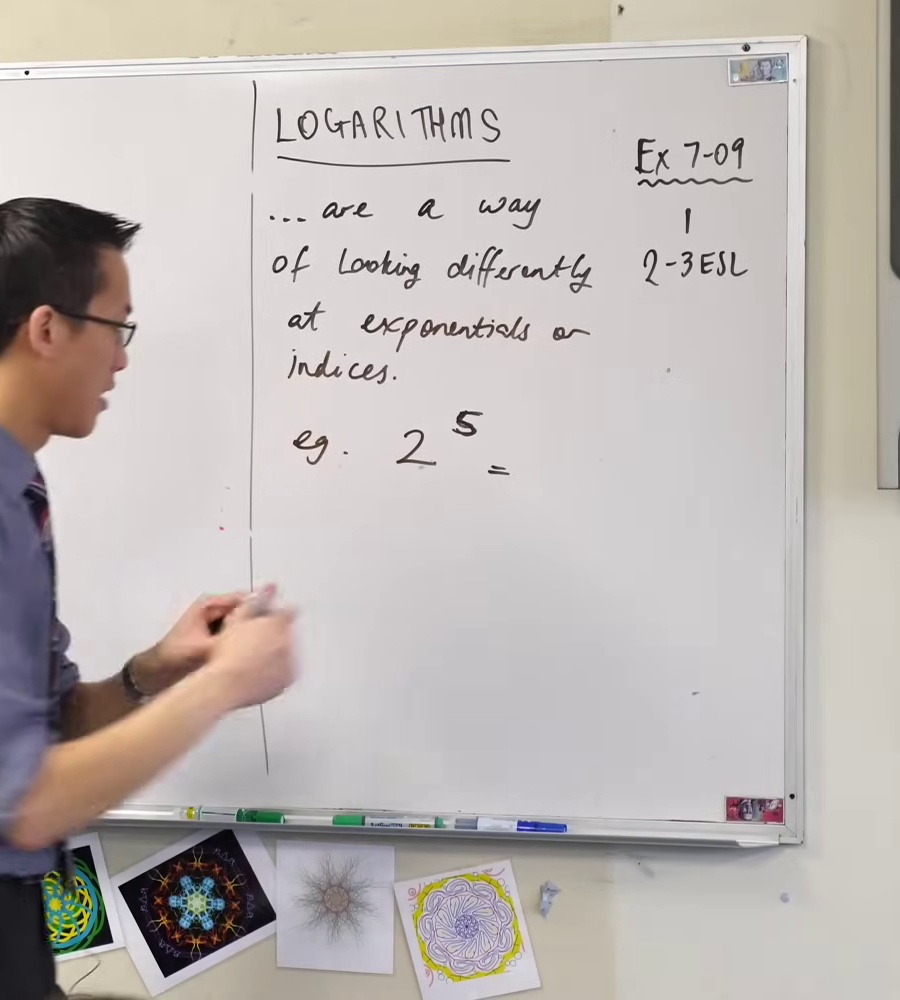 LOGARITHMS
... are a way
of Looking differently
at exponentials or
indices.
eg. 2⁵ =
Ex 7-09
1
2-3 ESL